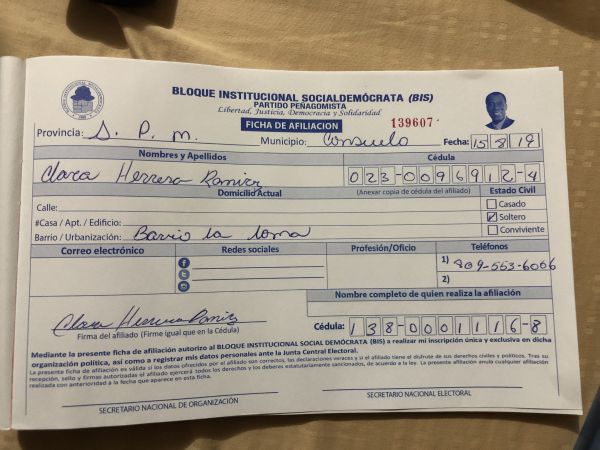 BLOQUE INSTITUCIONAL SOCIALDEMÓCRATA (BIS)
PARTIDO PEÑAGOMISTA
Libertad, Justicia, Democracia y Solidaridad
FICHA DE AFILIACION 139607
Provincia: S. P. M. Municipio: Consuelo Fecha: 15/8/19
Nombres y Apellidos Cédula
Clara Herrera Ramirez 023-0096912-4
Domicilio Actual (Anexar copia de cédula del afiliado) Estado Civil
Calle: Casado
#Casa / Apt. / Edificio: Soltero
Barrio / Urbanización: Barrio la loma Conviviente
Correo electrónico Redes sociales Profesión/Oficio Teléfonos
1) 809-553-6066
2)
Nombre completo de quien realiza la afiliación
Clara Herrera Ramirez
Firma del afiliado (Firme igual que en la Cédula) Cédula: 138-0001116-8
Mediante la presente ficha de afiliación autorizo al BLOQUE INSTITUCIONAL SOCIAL DEMÓCRATA (BIS) a realizar mi inscripción única y exclusiva en dicha
organización política, así como a registrar mis datos personales ante la Junta Central Electoral.
La presente ficha de afiliación es válida si los datos ofrecidos por el afiliado son correctos, las declaraciones veraces y si el afiliado tiene el disfrute de sus derechos civiles y políticos. Tras su
recepción, sello y firmas autorizadas el afiliado ejercerá todos los derechos y los deberes estatutariamente sancionados, de acuerdo a la ley. La presente afiliación anula cualquier afiliación
realizada con anterioridad a la fecha que aparece en esta ficha.
SECRETARIO NACIONAL DE ORGANIZACIÓN SECRETARIO NACIONAL ELECTORAL